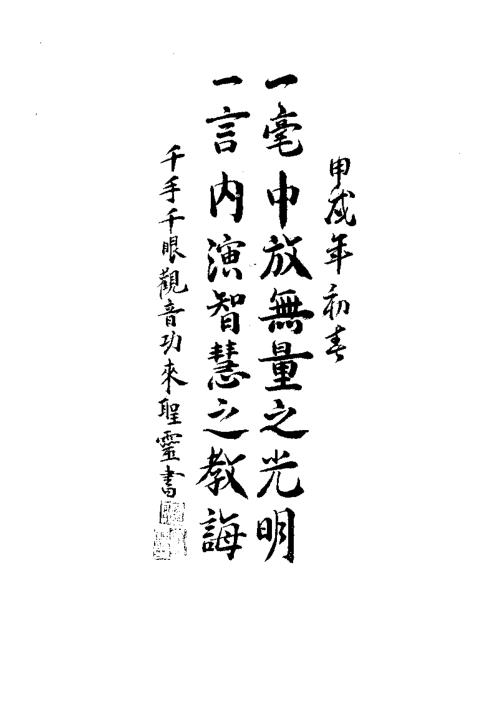 甲戌年初春
一毫中放無量之光明
一言內演智慧之教誨
千手千眼觀音功來聖靈書